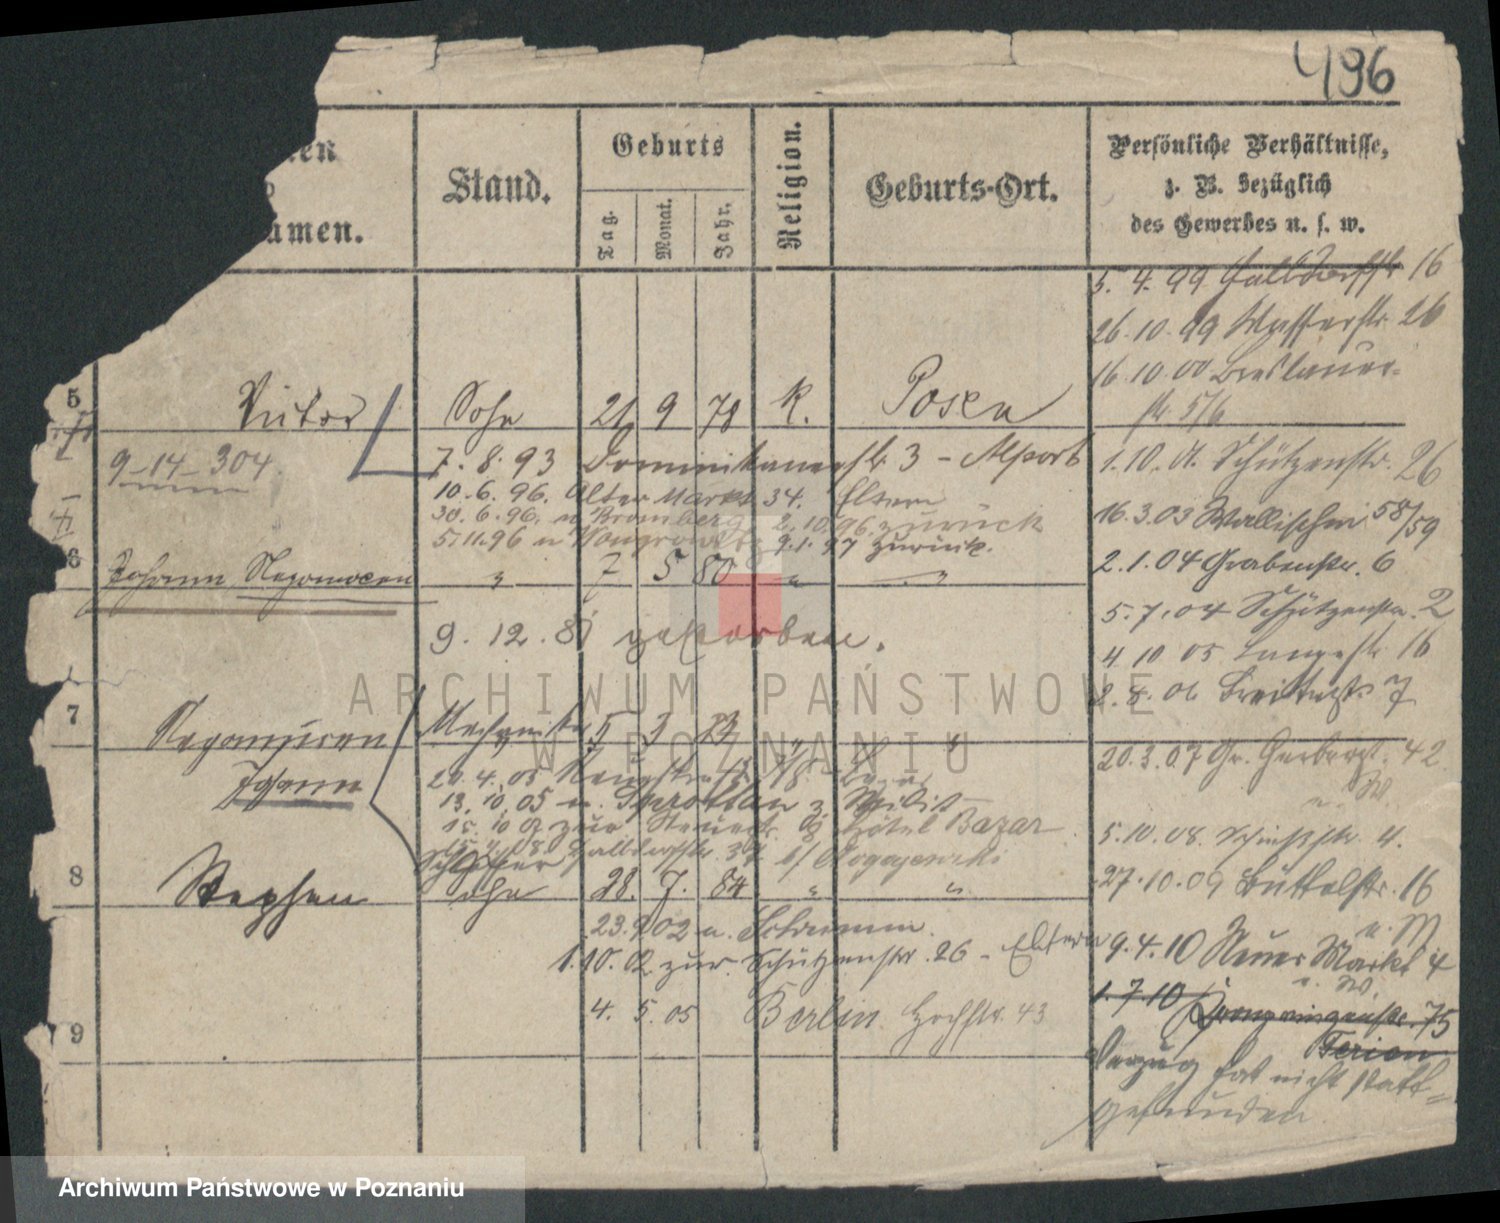 496
Stand.
Geburts
Tag.
Monat.
Jahr.
Religion.
Geburts-Ort.
Persönliche Verhältnisse,
z. B. bezüglich
des Gewerbes u. s. w.
amen.
5. 4. 99 Halbdorfstr 16
26.10.99 Wasserstr. 26
16.10.00 Breslauer-
str. 5/6
5
Victor
Sohn
21 9 78 K. Posen
9-14-304
7. 8. 93 Dominikanerstr. 3 -
10.6.96. Alter Markt 34. Eltern
30.6.96. n Bromberg 2.10.96. zurück
5.11.96 n Wongrowitz 9.1.97 zurück.
1.10.01. Schützenstr. 26
16.3.03 Wallischei 58/59
6
Johann Nepomucen
" 7 5 80 " "
9. 12. 81 gestorben.
2.1.04 Grabenstr. 6
5.7.04 Schützenstr. 2
4 10 05 Langestr 16
2. 8. 06 Breitestr. 7
7
Nepomucen
Johann
5 3
20.3.07 Gr. Gerberstr. 42.
13.10.05 n.
15.10.07 zur Hôtel Bazar
5.10.08. 4.
8
Stephan
Schlosser
Sohn
28. 7. 84 " "
27.10.09 Büttelstr. 16
23.9.02 n. Schrimm.
1.10.02 zur. Schützenstr. 26 - Eltern
9.4.10 Neuer Markt 4
4. 5. 05 Berlin Hochstr. 43
1.7.10 Kronprinzenstr. 75
Ferien
9
Verzug hat nicht statt=
gefunden
ARCHIWUM PAŃSTWOWE
W POZNANIU
Archiwum Państwowe w Poznaniu